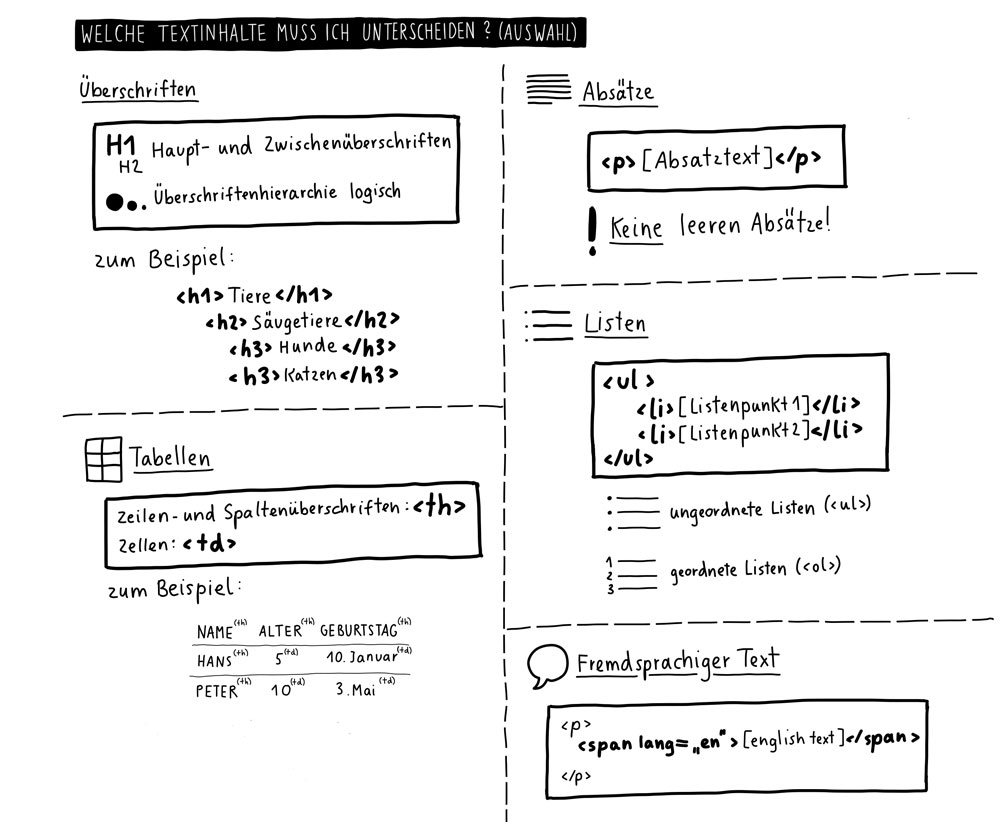 WELCHE TEXTINHALTE MUSS ICH UNTERSCHEIDEN? (AUSWAHL)
Überschriften
H1 Haupt- und Zwischenüberschriften
H2
Überschriftenhierarchie logisch
zum Beispiel:
<h1> Tiere </h1>
<h2> Säugetiere </h2>
<h3> Hunde </h3>
<h3> Katzen </h3>
Tabellen
Zeilen- und Spaltenüberschriften: <th>
Zellen: <td>
zum Beispiel:
NAME (th) ALTER (th) GEBURTSTAG (th)
HANS (th) 5 (td) 10. Januar (td)
PETER (th) 10 (td) 3. Mai (td)
Absätze
<p> [Absatztext] </p>
! Keine leeren Absätze!
Listen
<ul>
<li> [Listenpunkt 1] </li>
<li> [Listenpunkt 2] </li>
</ul>
ungeordnete Listen (<ul>)
1
2 geordnete Listen (<ol>)
3
Fremdsprachiger Text
<p>
<span lang=„en"> [english text] </span>
</p>